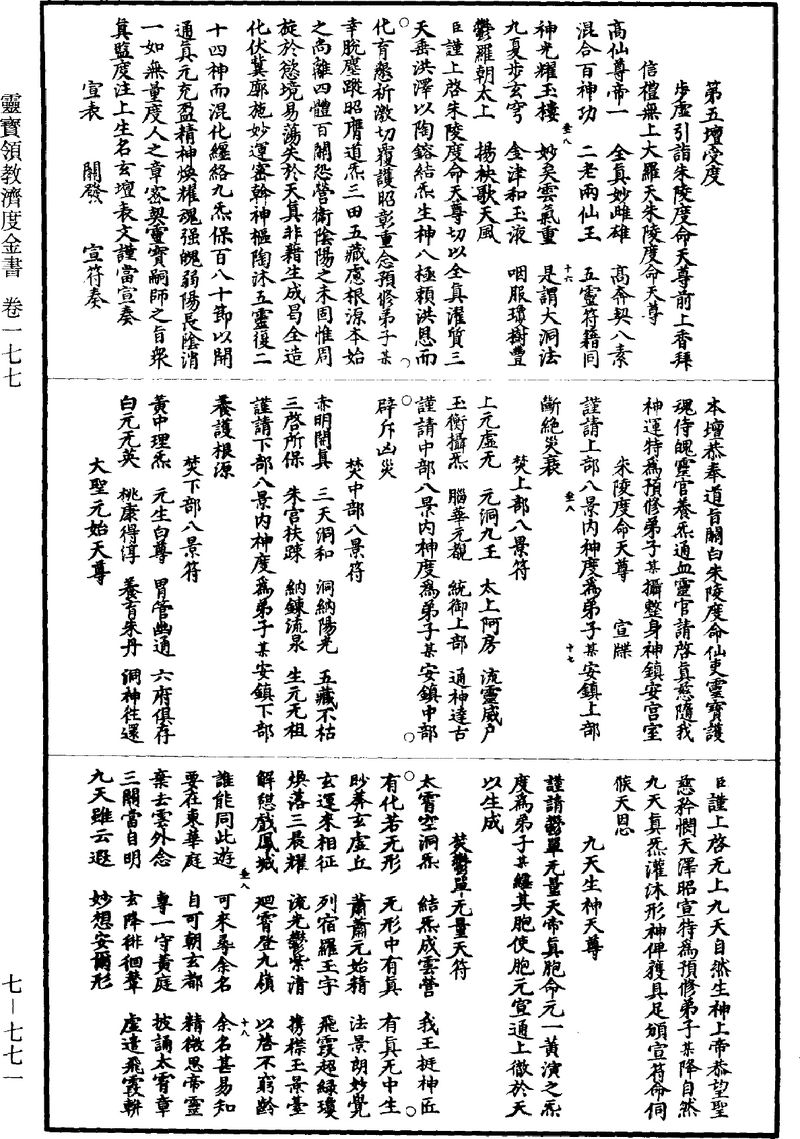 靈寶領教濟度金書　卷一七七
七—七七一
第五壇受度
步虛引詣朱陵度命天尊前上香拜
信禮無上大羅天朱陵度命天尊
高仙尊帝一　全真妙雌雄　高奔契八素
混合百神功　二老兩仙王　五靈符籍同
神光耀玉樓　妙炁雲氣重　是謂大洞法
九夏步玄穹　金津和玉液　咽服瓊樹豐
鬱羅朝太上　揚袂歌天風
臣謹上啓朱陵度命天尊切以全真濯質三
天垂洪澤以陶鎔結炁生神八極賴洪恩而
化育懇祈激切覆護昭彰重念預修弟子某
幸脫塵蹤昭膺道炁三田五藏慮根源本始
之尚離四體百關怨營衛陰陽之未固惟周
旋於慾境易蕩失於天真非藉生成曷全造
化伏冀廓施妙運密斡神樞陶沐五靈復二
十四神而混化纏絡九炁保百八十節以開
通真元充盈精神煥耀魂强魄弱陽長陰消
一如無量度人之章密契靈寶嗣師之旨衆
真監度注上生名玄壇表文謹當宣奏
宣表　關發　宣符奏
本壇恭奉道旨關白朱陵度命仙吏靈寶護
魂侍魄靈官養炁通血靈官請啓真慈隨我
神運特爲預修弟子某攝整身神鎮安宫室
朱陵度命天尊　宣牒
謹請上部八景内神度爲弟子某安鎮上部
斷絶災衰
焚上部八景符
上元虛无　元洞九王　太上阿房　流靈威户
玉衡攝炁　腦華元覩　統御上部　通神達古
謹請中部八景内神度爲弟子某安鎮中部
辟斥凶災
焚中部八景符
赤明開真　三天洞和　洞納陽光　五藏不枯
三啓所保　朱宫扶疎　納鍊流泉　生元无祖
謹請下部八景内神度爲弟子某安鎮下部
養護根源
焚下部八景符
黄中理炁　元生白尊　胃管幽通　六府俱存
白元元英　桃康得淳　養育朱丹　洞神往還
大聖元始天尊
臣謹上啓无上九天自然生神上帝恭望聖
慈矜憫天澤昭宣特爲預修弟子某降自然
九天真炁灌沐形神俾獲具足頒宣符命伺
候天恩
九天生神天尊
謹請鬱單无量天帝真胞命元一黄演之炁
度爲弟子某纏其胞使胞元宣通上徹於天
以生成
焚鬱單无量天符
太霄空洞炁　結炁成雲營　我王挺神匠
有化若无形　无形中有真　有真无中生
眇莽玄虛丘　蕭蕭元始精　法景朗妙覺
玄運來相征　列宿羅玉字　飛霞超緑瓊
煥落三晨耀　流光鬱紫清　携襟玉景臺
解憇戲鳳城　廻霄登九嶺　以啓不窮齡
誰能同此遊　可來尋余名　余名甚易知
要在東華庭　自可朝玄都　精微思帝靈
棄去雲外念　專一守黄庭　披誦太霄章
三關當自明　玄降徘徊輦　虛造飛霞輧
九天雖云遐　妙想安爾形